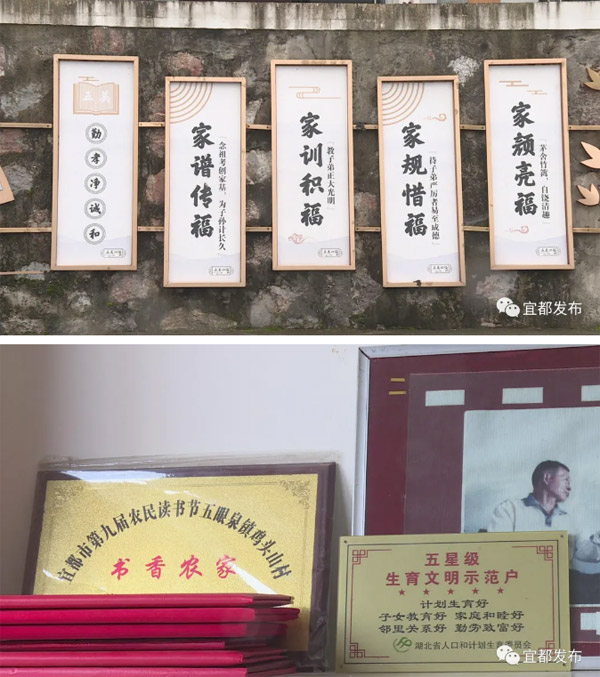 五義
勤
孝
净
诚
和
家谱传福
「念祖考创家基，为子孙计长久」
家训积福
「教子弟正大光明」
家规惜福
「待子弟严厉者易至成德」
家颜亮福
「茅舍竹篱，自饶清趣」
宜都发布
宜都市第九届农民读书节五眼泉镇鸡头山村
书香农家
五星级
生育文明示范户
★ ★ ★ ★ ★
计划生育好
子女教育好 家庭和睦好
邻里关系好 勤劳致富好
湖北省人口和计划生育委员会
宜都发布